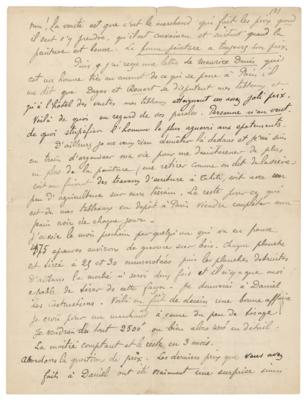 (3)
non! La vérité est que c'est le marchand qui fait les prix quand
il sait s'y prendre, qu'il est convaincu et surtout quand la
peinture est bonne. La bonne peinture a toujours son prix.
Puis, j'ai reçu une lettre de Maurice Denis qui
est un homme très au courant de ce qui se passe à Paris: il
me dit que Degas et Rouart se disputent mes tableaux et
qu'à l'hôtel des ventes mes tableaux atteignent un assez joli prix.
Voilà de quoi en regard de vos paroles. Personne n'en veut
de quoi stupéfier l'homme le plus aguerri aux épatements.
D'ailleurs je ne veux rien démêler là dedans et je suis
en train d'organiser ma vie pour me désintéresser de plus
en plus de la peinture (me retirer comme on dit de la scène)
soit en faisant des travaux d'écriture à Tahiti, soit avec un
peu d'agriculture sur mon terrain. Le reste pour ce qui
est de mes tableaux en dépôt à Paris viendra compléter mon
pain noir de chaque jour.
J'envoie le mois prochain par quelqu'un qui va en France
475 épreuves environ de gravures sur bois. Chaque planche
est tirée à 25 et 30 numérotées puis les planches détruites
D'autres la moitié a servi deux fois et il n'y a que moi
capable de tirer de cette façon. Je donnerai à Daniel
les instructions. Voilà en fait de dessin une bonne affaire
je crois pour un marchand à cause du peu de tirage
Je voudrai du tout 2500f ou bien alors en détail.
La moitié comptant et le reste en 3 mois.
Abordons la question de prix. Les derniers prix que vous avez
faits à Daniel ont été vraiment une surprise sinon